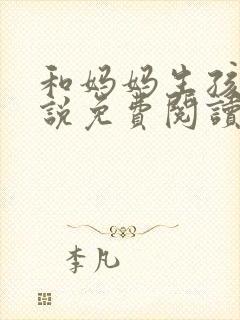 和妈妈生孩
說免費閱讀
李凡